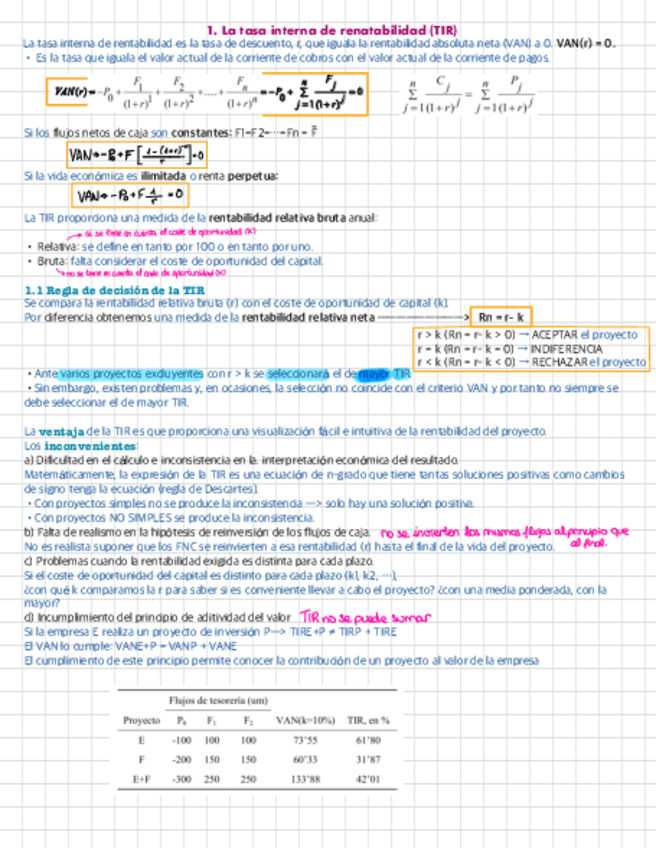 1. La tasa interna de renatabilidad (TIR)
La tasa interna de rentabilidad es la tasa de descuento, r, que iguala la rentabilidad absoluta neta (VAN) a 0. VAN(r) = 0.
• Es la tasa que iguala el valor actual de la corriente de cobros con el valor actual de la corriente de pagos.
VAN(r) = -P₀ + F₁/(1+r)¹ + F₂/(1+r)² + .... + Fₙ/(1+r)ⁿ = -P₀ + Σⁿⱼ₌₁ Fⱼ/(1+r)ʲ = 0    Σⁿⱼ₌₁ Cⱼ/(1+r)ʲ = Σⁿⱼ₌₁ Pⱼ/(1+r)ʲ
Si los flujos netos de caja son constantes: F1=F2=···=Fn = F̅
VAN = -P₀ + F [1-(1+r)⁻ⁿ/r] = 0
Si la vida económica es ilimitada o renta perpetua:
VAN = -P₀ + F 1/r = 0
La TIR proporciona una medida de la rentabilidad relativa bruta anual:
si se tiene en cuenta el coste de oportunidad (k)
• Relativa: se define en tanto por 100 o en tanto por uno.
• Bruta: falta considerar el coste de oportunidad del capital.
no se tiene en cuenta el coste de oportunidad (k)
1.1 Regla de decisión de la TIR
Se compara la rentabilidad relativa bruta (r) con el coste de oportunidad de capital (k).
Por diferencia obtenemos una medida de la rentabilidad relativa neta ————> Rn = r- k
r > k (Rn = r- k > 0) → ACEPTAR el proyecto
r = k (Rn = r- k = 0) → INDIFERENCIA
r < k (Rn = r- k < 0) → RECHAZAR el proyecto
• Ante varios proyectos excluyentes con r > k se seleccionará el de mayor TIR
• Sin embargo, existen problemas y, en ocasiones, la selección no coincide con el criterio VAN y por tanto no siempre se
debe seleccionar el de mayor TIR.
La ventaja de la TIR es que proporciona una visualización fácil e intuitiva de la rentabilidad del proyecto.
Los inconvenientes:
a) Dificultad en el cálculo e inconsistencia en la interpretación económica del resultado.
Matemáticamente, la expresión de la TIR es una ecuación de n-grado que tiene tantas soluciones positivas como cambios
de signo tenga la ecuación (regla de Descartes).
• Con proyectos simples no se produce la inconsistencia —> solo hay una solución positiva.
• Con proyectos NO SIMPLES se produce la inconsistencia.
b) Falta de realismo en la hipótesis de reinversión de los flujos de caja. no se invierten los mismos flujos al principio que
al final.
No es realista suponer que los FNC se reinvierten a esa rentabilidad (r) hasta el final de la vida del proyecto.
c) Problemas cuando la rentabilidad exigida es distinta para cada plazo.
Si el coste de oportunidad del capital es distinto para cada plazo (k1, k2, ···),
¿con qué k comparamos la r para saber si es conveniente llevar a cabo el proyecto? ¿con una media ponderada, con la
mayor?
d) Incumplimiento del principio de aditividad del valor TIR no se puede sumar
Si la empresa E realiza un proyecto de inversión P—> TIRE+P ≠ TIRP + TIRE
El VAN lo cumple: VANE+P = VANP + VANE
El cumplimiento de este principio permite conocer la contribución de un proyecto al valor de la empresa
Flujos de tesorería (um)
Proyecto P₀ F₁ F₂ VAN(k=10%) TIR, en %
E -100 100 100 73'55 61'80
F -200 150 150 60'33 31'87
E+F -300 250 250 133'88 42'01